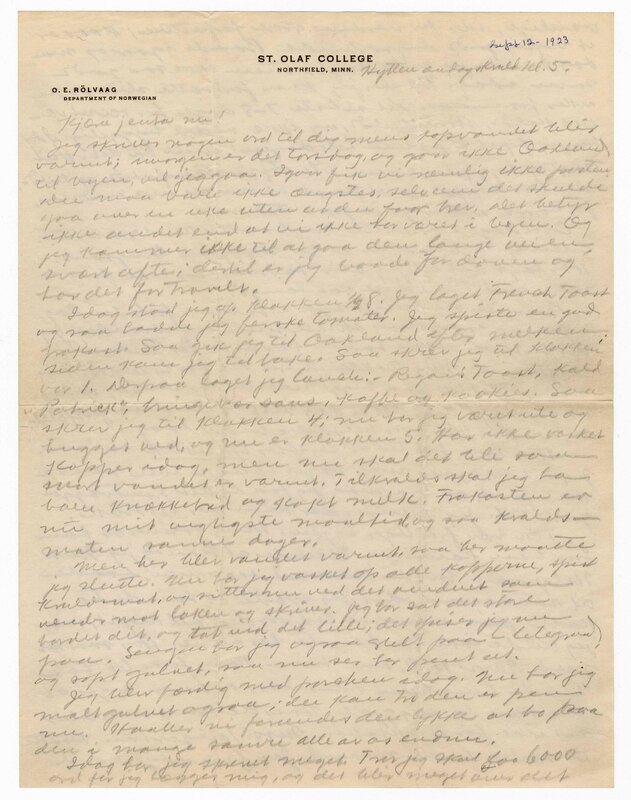 Sept 12 - 1923
ST. OLAF COLLEGE
NORTHFIELD, MINN.
Hytten onsdagskveld kl. 5.
O. E. RÖLVAAG
DEPARTMENT OF NORWEGIAN
Kjære jenta mi!
Jeg skriver nogen ord til dig mens opvandet blir
varmt; imorgen er det torsdag, og gaar ikke Oakland
til byen, vil jeg gaa. Igaar fik vi nemlig ikke posten
Dere maa bare ikke ængstes, selv om det skulde
gaa over en uke uten at du faar brev, det betyr
ikke andet end at vi ikke har været i byen. Og
jeg kommer ikke til at gaa den lange veien
svært ofte; dertil er jeg baade for doven og
har det for travelt.
Idag stod jeg op klokken 1/2 8. Jeg laget French Toast
og saa hadde jeg ferske tomater. Jeg spiste en god
frokost. Saa gik jeg til Oakland efter melken;
siden kom jeg tilbake. Saa skrev jeg til klokken
var 1. Derpaa laget jeg lunch: Toast, kald
bringebær saus, kaffe og kookies. Saa
skrev jeg til klokken 4; nu har jeg været ute og
hugget ved, og nu er klokken 5. Har ikke vasket
kopper idag, men nu skal det bli saa
snart vandet er varmt. Tilkvelds skal jeg ha
bare knækkebrød og kokt melk. Frokosten er
nu mit vigtigste maaltid, og saa kvelds-
maten somme dager.
Men her blev vandet varmt, saa her maatte
jeg slutte. Nu har jeg vasket op alle kopperne, spist
kveldsmat, og sitter nu ved det vinduet som
vender mot laken og skriver. Jeg har sat det store
bordet dit, og tat ind det lille; det spiser jeg nu
paa. Sengen har jeg ogsaa
og sopt gulvet, saa nu ser her pent ut.
Jeg blev færdig med porchen idag. Nu har jeg
malt gulvet ogsaa; du kan tro den er pen
nu. Maatte vi forundes den lykke at bo paa
den i mange somre alle av os endnu.
Idag har jeg skrevet meget. Tror jeg skal faa 6000
ord før jeg lægger mig, og det blir meget over det